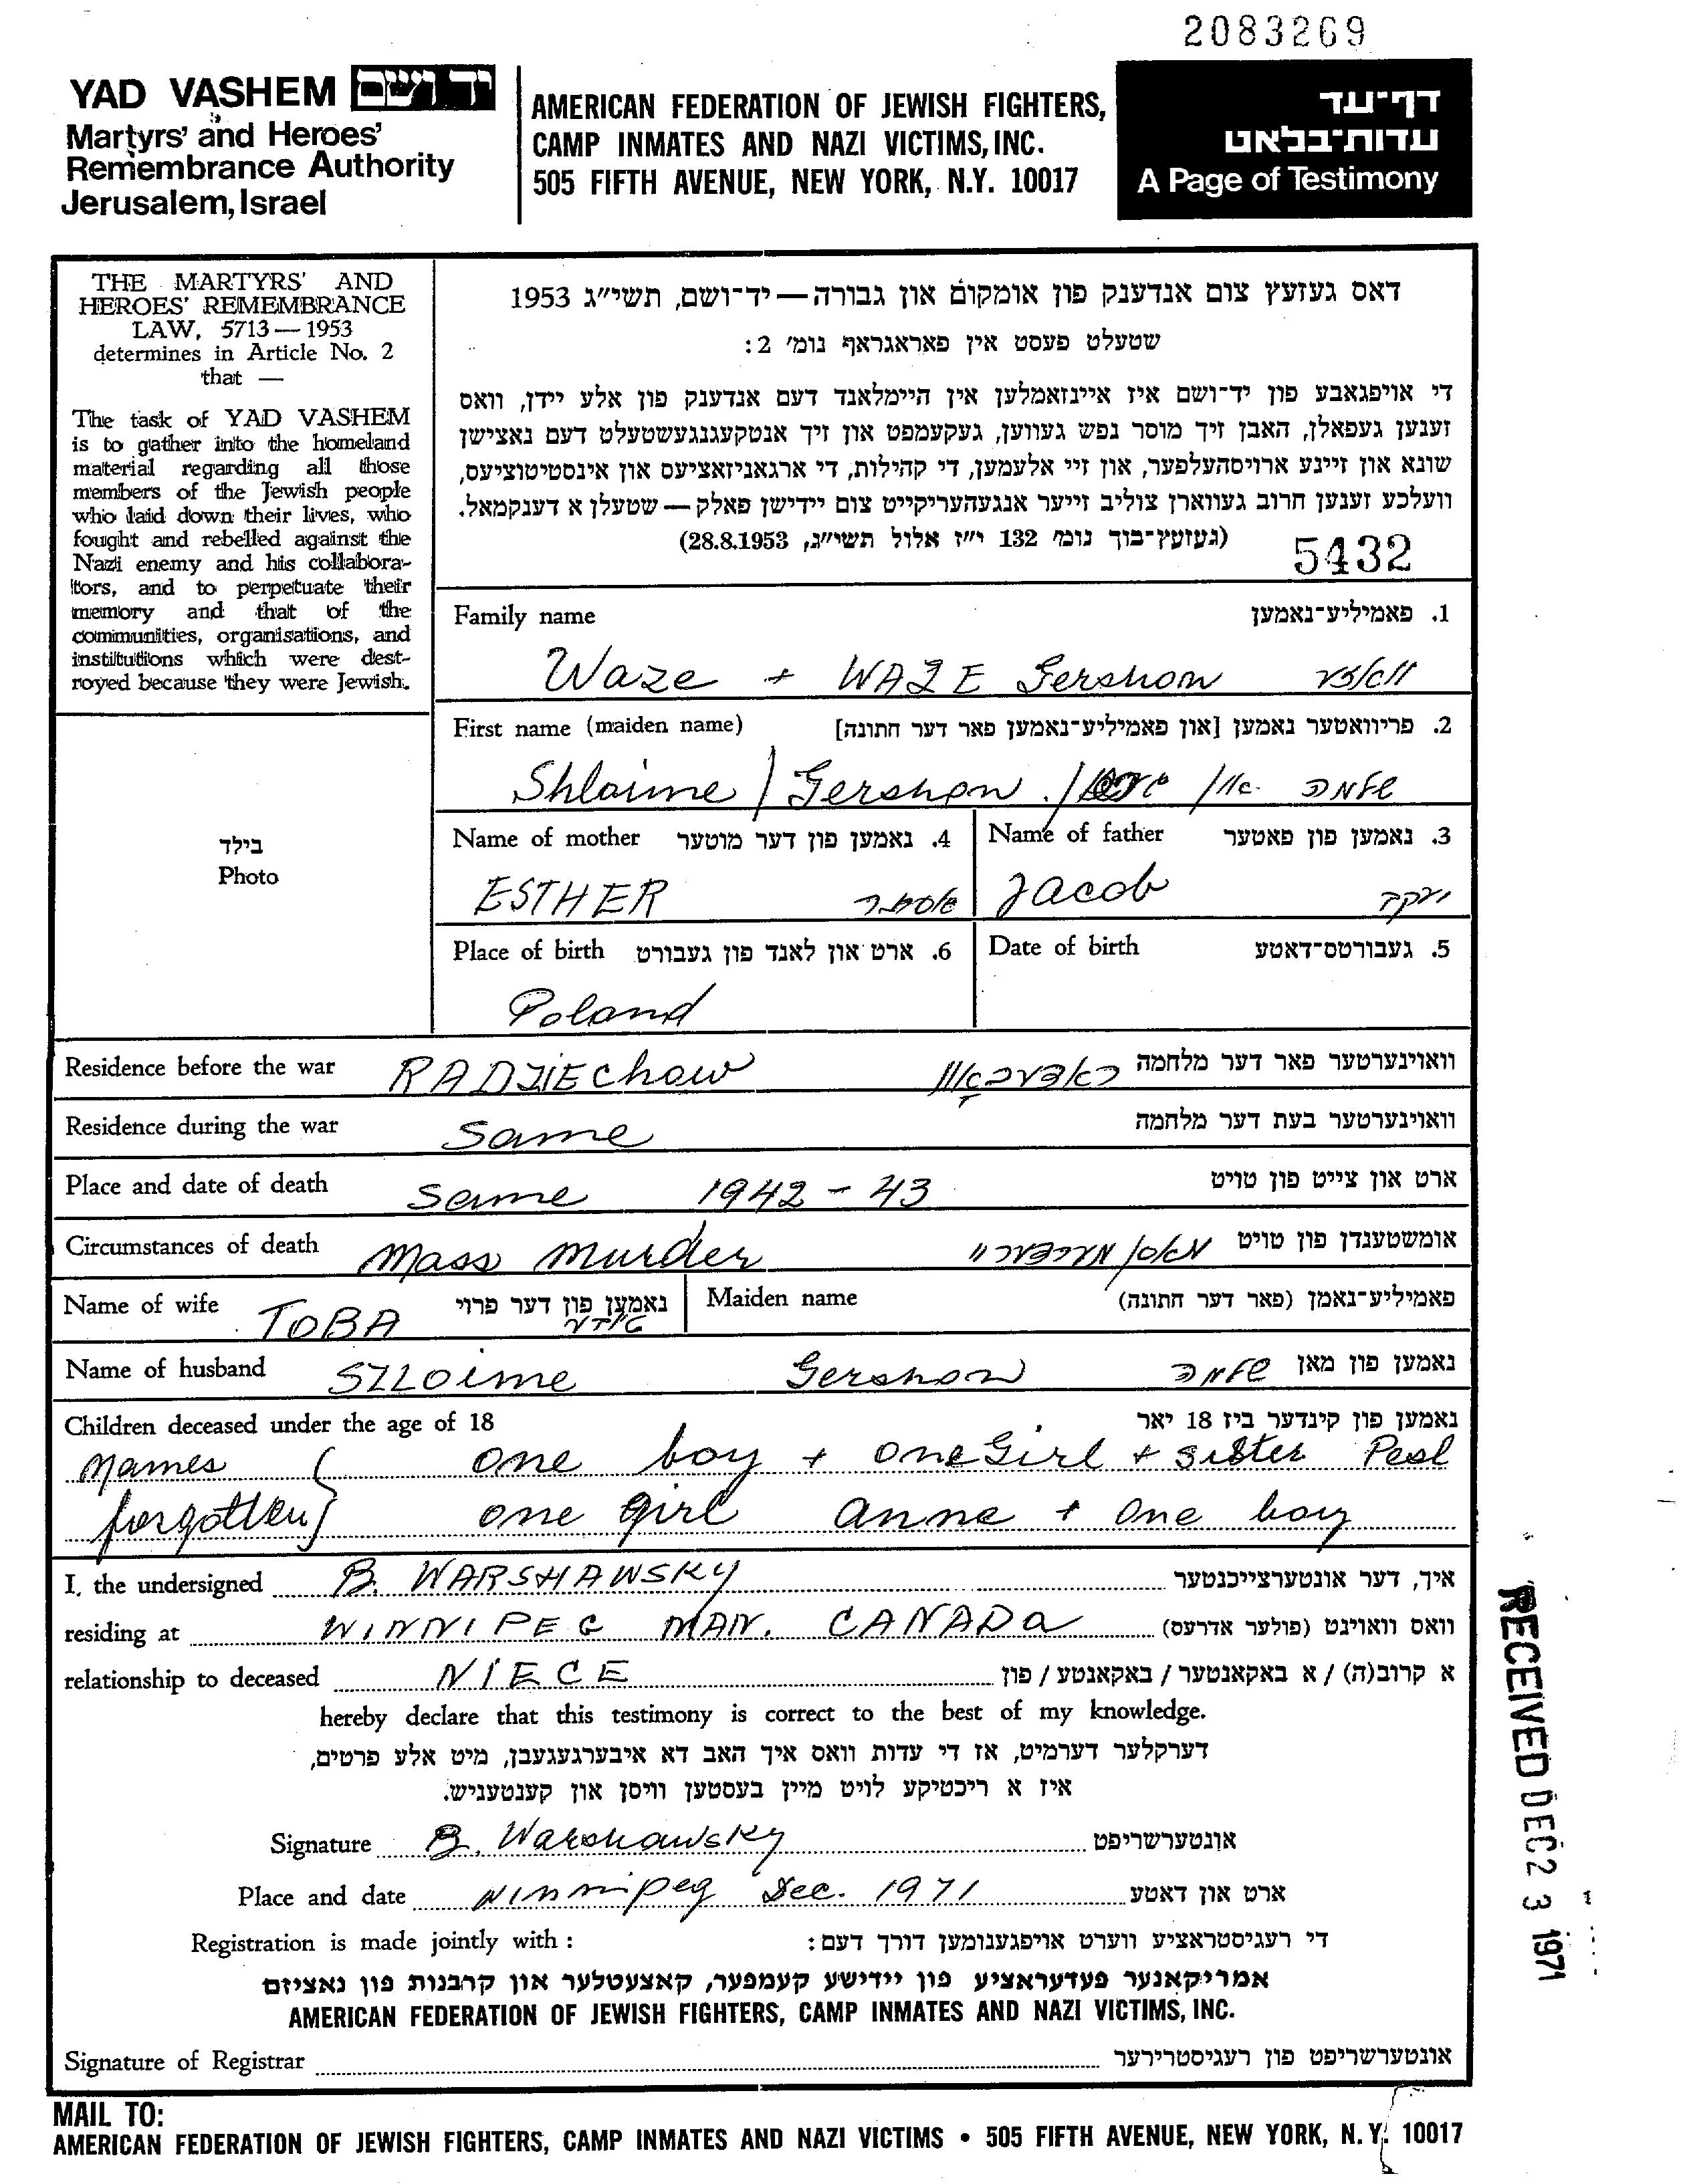 2083269
YAD VASHEM יד ושם
Martyrs' and Heroes'
Remembrance Authority
Jerusalem, Israel
AMERICAN FEDERATION OF JEWISH FIGHTERS,
CAMP INMATES AND NAZI VICTIMS, INC.
505 FIFTH AVENUE, NEW YORK, N.Y. 10017
דף־עד
עדות־בלאט
A Page of Testimony
THE MARTYRS' AND
HEROES' REMEMBRANCE
LAW, 5713—1953
determines in Article No. 2
that —
The task of YAD VASHEM
is to gather into the homeland
material regarding all those
members of the Jewish people
who laid down their lives, who
fought and rebelled against the
Nazi enemy and his collabora-
tors, and to perpetuate their
memory and that of the
communities, organisations, and
institutions which were dest-
royed because they were Jewish.
דאס געזעץ צום אנדענק פון אומקום און גבורה — יד־ושם, תשי"ג 1953
שטעלט פעסט אין פאראגראף נומ' 2:
די אויפגאבע פון יד־ושם איז איינזאמלען אין היימלאנד דעם אנדענק פון אלע יידן, וואס
זענען געפאלן, האבן זיך מוסר נפש געווען, געקעמפט און זיך אנטקעגנגעשטעלט דעם נאצישן
שונא און זיינע ארויסהעלפער, און זיי אלעמען, די קהילות, די ארגאניזאציעס און אינסטיטוציעס,
וועלכע זענען חרוב געווארן צוליב זייער אנגעהעריקייט צום יידישן פאלק — שטעלן א דענקמאל.
(געזעץ־בוך נומ' 132 י"ז אלול תשי"ג, 28.8.1953)
5432
Family name 1. פאמיליע־נאמען
Waze + WAZE Gershon
First name (maiden name) 2. פריוואטער נאמען [און פאמיליע־נאמען פאר דער חתונה]
Shloime / Gershon שלמה
Name of mother 4. נאמען פון דער מוטער
ESTHER אסתר
Name of father 3. נאמען פון פאטער
Jacob יעקב
Place of birth 6. ארט און לאנד פון געבורט
Poland
Date of birth 5. געבורטס־דאטע
Residence before the war RADZIEchow וואוינערטער פאר דער מלחמה
Residence during the war Same וואוינערטער בעת דער מלחמה
Place and date of death Same 1942 - 43 ארט און צייט פון טויט
Circumstances of death Mass Murder אומשטענדן פון טויט
Name of wife TOBA נאמען פון דער פרוי
Maiden name פאמיליע־נאמן (פאר דער חתונה)
Name of husband SZLOime Gershon שלמה נאמען פון מאן
Children deceased under the age of 18 נאמען פון קינדער ביז 18 יאר
Names ( one boy + one Girl + sister Pesl
forgotten ) one girl anne + one boy
I, the undersigned B. WARSHAWSKY איך, דער אונטערצייכנטער
residing at WINNIPEG MAN. CANADA וואס וואוינט (פולער אדרעס)
relationship to deceased NIECE א קרוב(ה) / א באקאנטער / באקאנטע / פון
hereby declare that this testimony is correct to the best of my knowledge.
דערקלער דערמיט, אז די עדות וואס איך האב דא איבערגעגעבן, מיט אלע פרטים,
איז א ריכטיקע לויט מיין בעסטען וויסן און קענטעניש.
Signature B. Warshawsky אונטערשריפט
Place and date Winnipeg Dec. 1971 ארט און דאטע
Registration is made jointly with: די רעגיסטראציע ווערט אויפגענומען דורך דעם:
אמריקאנער פעדעראציע פון יידישע קעמפער, קאצעטלער און קרבנות פון נאציזם
AMERICAN FEDERATION OF JEWISH FIGHTERS, CAMP INMATES AND NAZI VICTIMS, INC.
Signature of Registrar אונטערשריפט פון רעגיסטרירער
MAIL TO:
AMERICAN FEDERATION OF JEWISH FIGHTERS, CAMP INMATES AND NAZI VICTIMS • 505 FIFTH AVENUE, NEW YORK, N.Y. 10017
RECEIVED DEC 23 1971